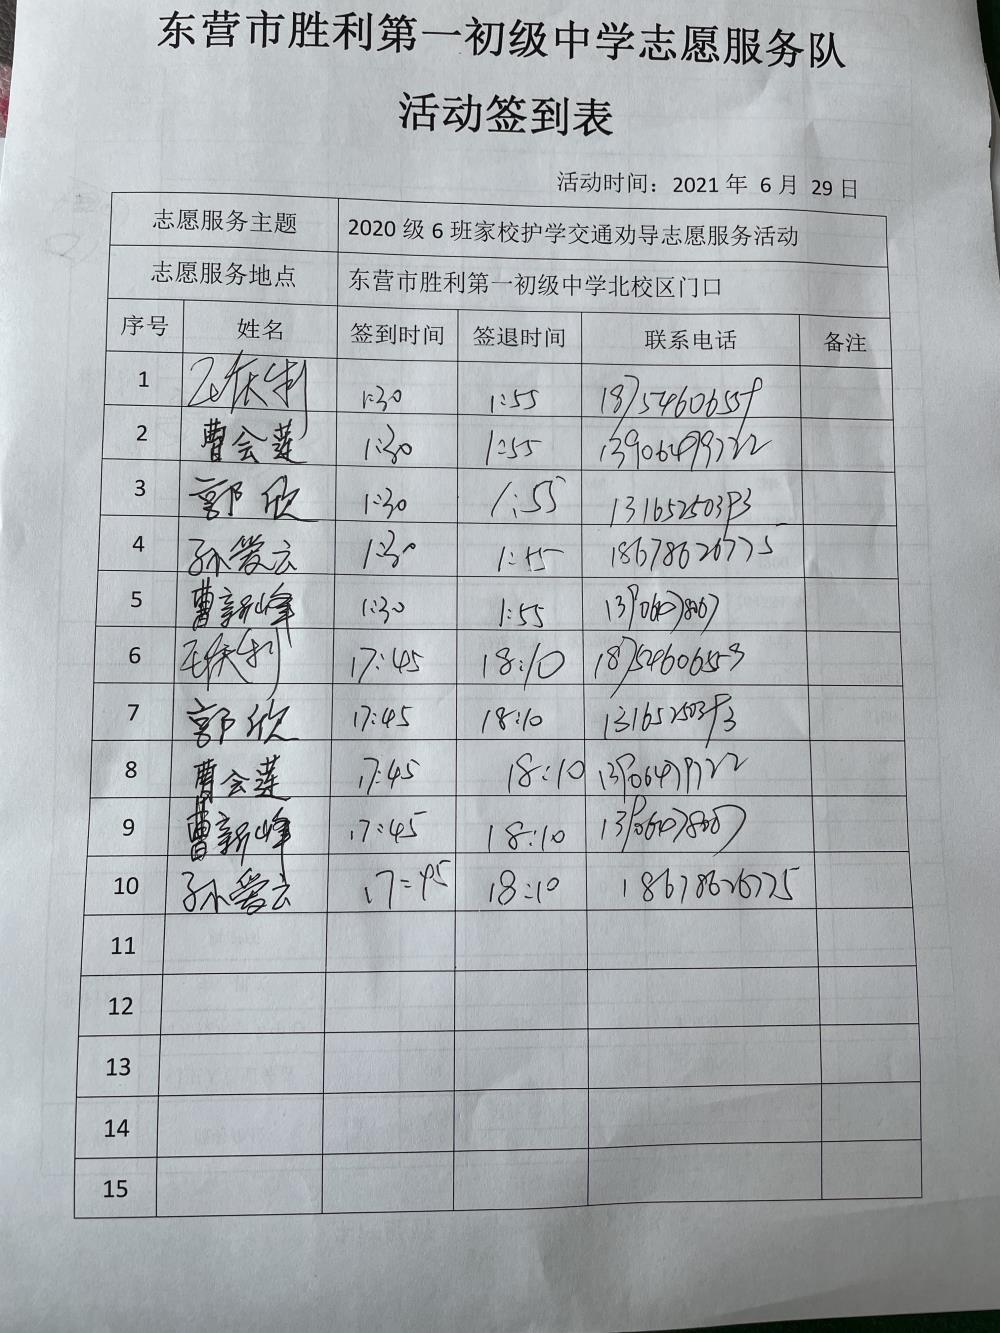 东营市胜利第一初级中学志愿服务队
活动签到表
活动时间：2021 年 6 月 29 日
志愿服务主题 2020 级 6 班家校护学交通劝导志愿服务活动
志愿服务地点 东营市胜利第一初级中学北校区门口
序号 姓名 签到时间 签退时间 联系电话 备注
1 1:30 1:55 18754606559
2 曹会莲 1:30 1:55 13906499722
3 郭欣 1:30 1:55 13165250393
4 孙爱云 1:30 1:55 18678626775
5 曹新峰 1:30 1:55
6 17:45 18:10 18754606559
7 郭欣 17:45 18:10 13165250393
8 曹会莲 17:45 18:10 13906499722
9 曹新峰 17:45 18:10
10 孙爱云 17:45 18:10 18678626775
11
12
13
14
15